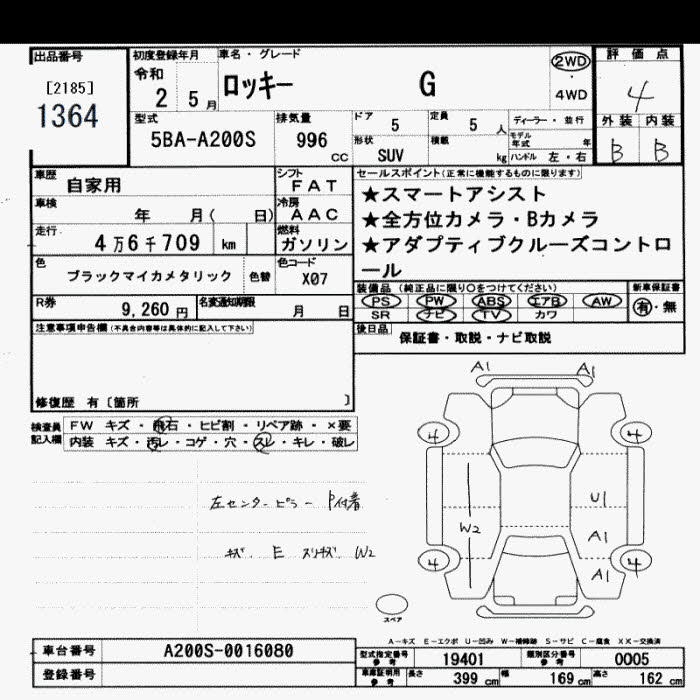 出品番号
[2185]
1364
初度登録年月
令和
2 5月
車名・グレード
ロッキー G
2WD
・
4WD
評価点
4
外装 内装
B B
型式
5BA-A200S
排気量
996
CC
ドア
5
定員
5 人
形状
SUV
積載
kg
ディーラー・並行
モデル
年式 年
ハンドル 左・右
車歴
自家用
シフト
FAT
車検
年 月( 日)
冷房
AAC
走行
4万6千709 km
燃料
ガソリン
色
ブラックマイカメタリック
色替
色コード
X07
R券
9,260円
名変通知期限
月 日
セールスポイント(正常に機能するものに限ります)
★スマートアシスト
★全方位カメラ・Bカメラ
★アダプティブクルーズコントロ
ール
装備品(純正品に限り○をつけてください)
PS PW ABS エアB AW
SR ナビ TV カワ
新車保証書
有・無
後日品
保証書・取説・ナビ取説
注意事項申告欄(不具合内容等は具体的に記入して下さい)
修復歴 有〔箇所 〕
検査員
記入欄
FW キズ・飛石・ヒビ割・リペア跡・×要
内装 キズ・汚レ・コゲ・穴・スレ・キレ・破レ
左センターピラー P付着
キズ E スリキズ W2
A1 A1
4 4
U1
W2
A1
A1
4 4
スペア
A-キズ E-エクボ U-凹み W-補修跡 S-サビ C-腐食 XX-交換済
車台番号
A200S-0016080
登録番号
型式指定番号
参考
19401
類別区分番号
参考
0005
車庫証明用
参考
長さ
399 cm
幅
169 cm
高さ
162 cm